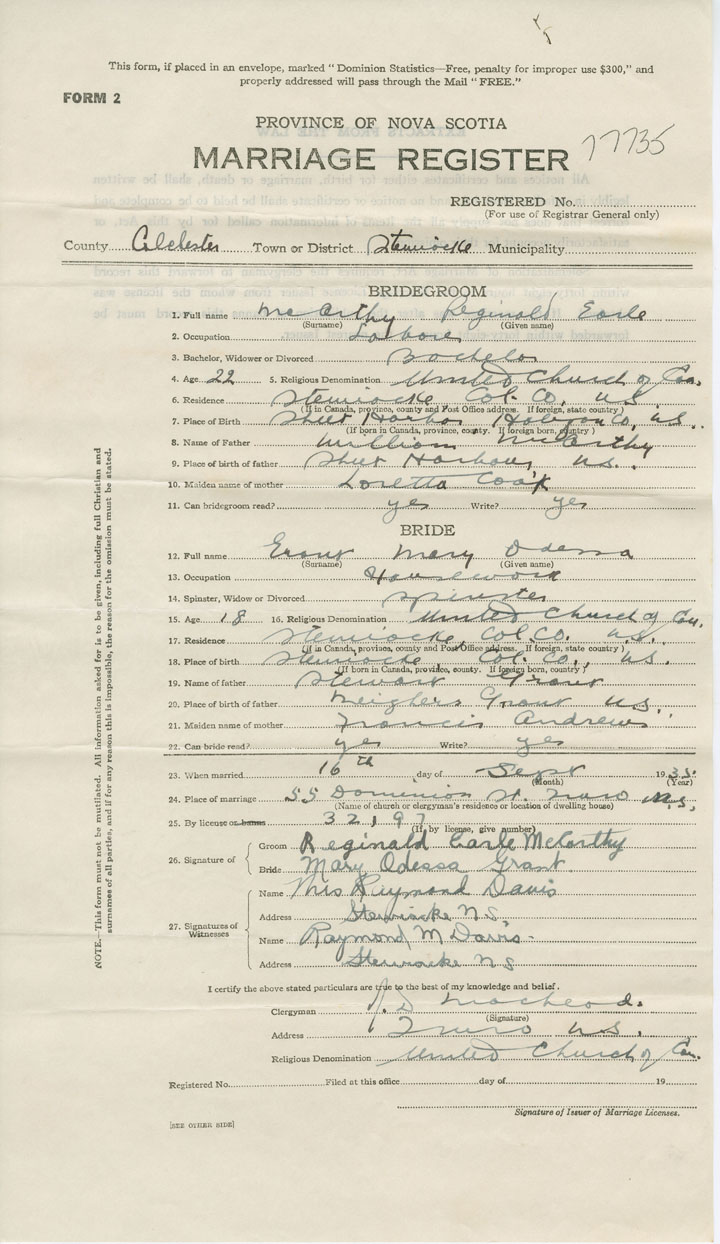 This form, if placed in an envelope, marked "Dominion Statistics—Free, penalty for improper use $300," and
properly addressed will pass through the Mail "FREE."
FORM 2
PROVINCE OF NOVA SCOTIA
MARRIAGE REGISTER 77735
REGISTERED No.
(For use of Registrar General only)
County Colchester Town or District Stewiacke Municipality
BRIDEGROOM
1. Full name McCarthy Reginald Earle
(Surname) (Given name)
2. Occupation Laborer
3. Bachelor, Widower or Divorced Bachelor
4. Age 22 5. Religious Denomination United Church of Can.
6. Residence Stewiacke Col. Co. N.S.
(If in Canada, province, county and Post Office address. If foreign, state country)
7. Place of Birth Sheet Harbor Halifax Co. N.S.
(If born in Canada, province, county. If foreign born, country)
8. Name of Father William McCarthy
9. Place of birth of father Sheet Harbour, N.S.
10. Maiden name of mother Loretta Cook
11. Can bridegroom read? yes Write? yes
BRIDE
12. Full name Grant Mary Odessa
(Surname) (Given name)
13. Occupation Housework
14. Spinster, Widow or Divorced Spinster
15. Age 18 16. Religious Denomination United Church of Can.
17. Residence Stewiacke Col. Co. N.S.
(If in Canada, province, county and Post Office address. If foreign, state country)
18. Place of birth Stewiacke Col. Co., N.S.
(If born in Canada, province, county. If foreign born, country)
19. Name of father Stewart Grant
20. Place of birth of father Grant N.S.
21. Maiden name of mother Francis Andrews
22. Can bride read? yes Write? yes
23. When married 16th day of Sept 1935
(Month) (Year)
24. Place of marriage 55 Dominion St. Truro N.S.
(Name of church or clergyman's residence or location of dwelling house)
25. By license or banns 32197
(If, by license, give number)
26. Signature of Groom Reginald Earle McCarthy
Bride Mary Odessa Grant
27. Signatures of Witnesses Name Mrs Raymond Davis
Address Stewiacke N.S.
Name Raymond M Davis
Address Stewiacke N S
I certify the above stated particulars are true to the best of my knowledge and belief.
Clergyman J. D. MacLeod
(Signature)
Address Truro N.S.
Religious Denomination United Church of Can.
Registered No. Filed at this office day of 19
Signature of Issuer of Marriage Licenses.
[SEE OTHER SIDE]
NOTE.—This form must not be mutilated. All information asked for is to be given, including full Christian and
surnames of all parties, and if for any reason this is impossible, the reason for the omission must be stated.